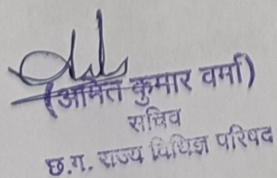 (अमित कुमार वर्मा)
सचिव
छ.ग. राज्य विधिज्ञ परिषद